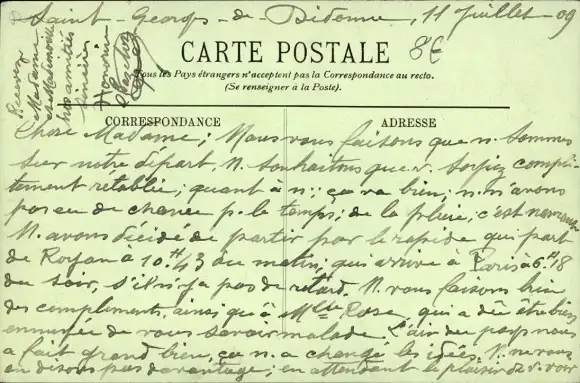 Saint-Georges-de-Didonne, 11 Juillet 09
Recevez
Madame
et Mademoiselle
nos amitiés
sincères
Honorine
8E
CARTE POSTALE
Tous les Pays étrangers n'acceptent pas la Correspondance au recto.
(Se renseigner à la Poste).
CORRESPONDANCE
ADRESSE
Chère Madame; Nous vous faisons que n. sommes
sur notre départ. N. souhaitons que v. soyiez complè-
tement rétablie; quant à n.; ça va bien; n. n'avons
pas eu de chance p. le temps; de la pluie, c'est navrant
N. avons décidé de partir par le rapide qui part
de Royan à 10H43 du matin; qui arrive à Paris à 6H18
du soir, s'il n'y a pas de retard. N. vous faisons bien
des compliments, ainsi qu'à Mlle Rose, qui a dû être bien
ennuyée de vous savoir malade. L'air du pays nous
a fait grand bien, ça n. a changé les idées. N. ne vous
en disons pas davantage; en attendant le plaisir de v. voir